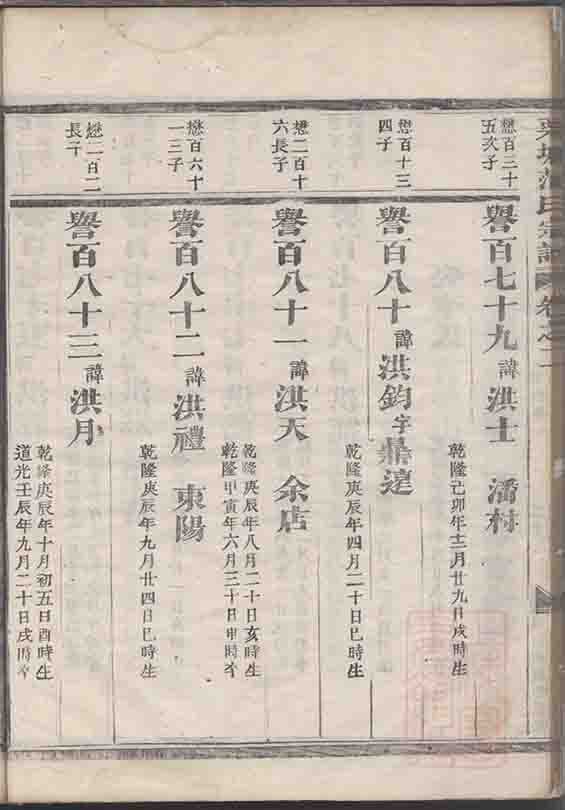 氏宗譜 卷之二
懋百三十
五次子
譽百七十九 諱洪士 潘村
乾隆己卯年十二月廿九日戌時生
懋百十三
四子
譽百八十 諱洪鈞字鼎遠
乾隆庚辰年四月二十日巳時生
懋二百十
六長子
譽百八十一 諱洪天 余店
乾隆庚辰年八月二十日亥時生
乾隆甲寅年六月三十日申時卒
懋百六十
一三子
譽百八十二 諱洪禮 東陽
乾隆庚辰年九月廿四日巳時生
懋二百二
長子
譽百八十三 諱洪月
乾隆庚辰年十月初五日酉時生
道光壬辰年九月二十日戌時卒